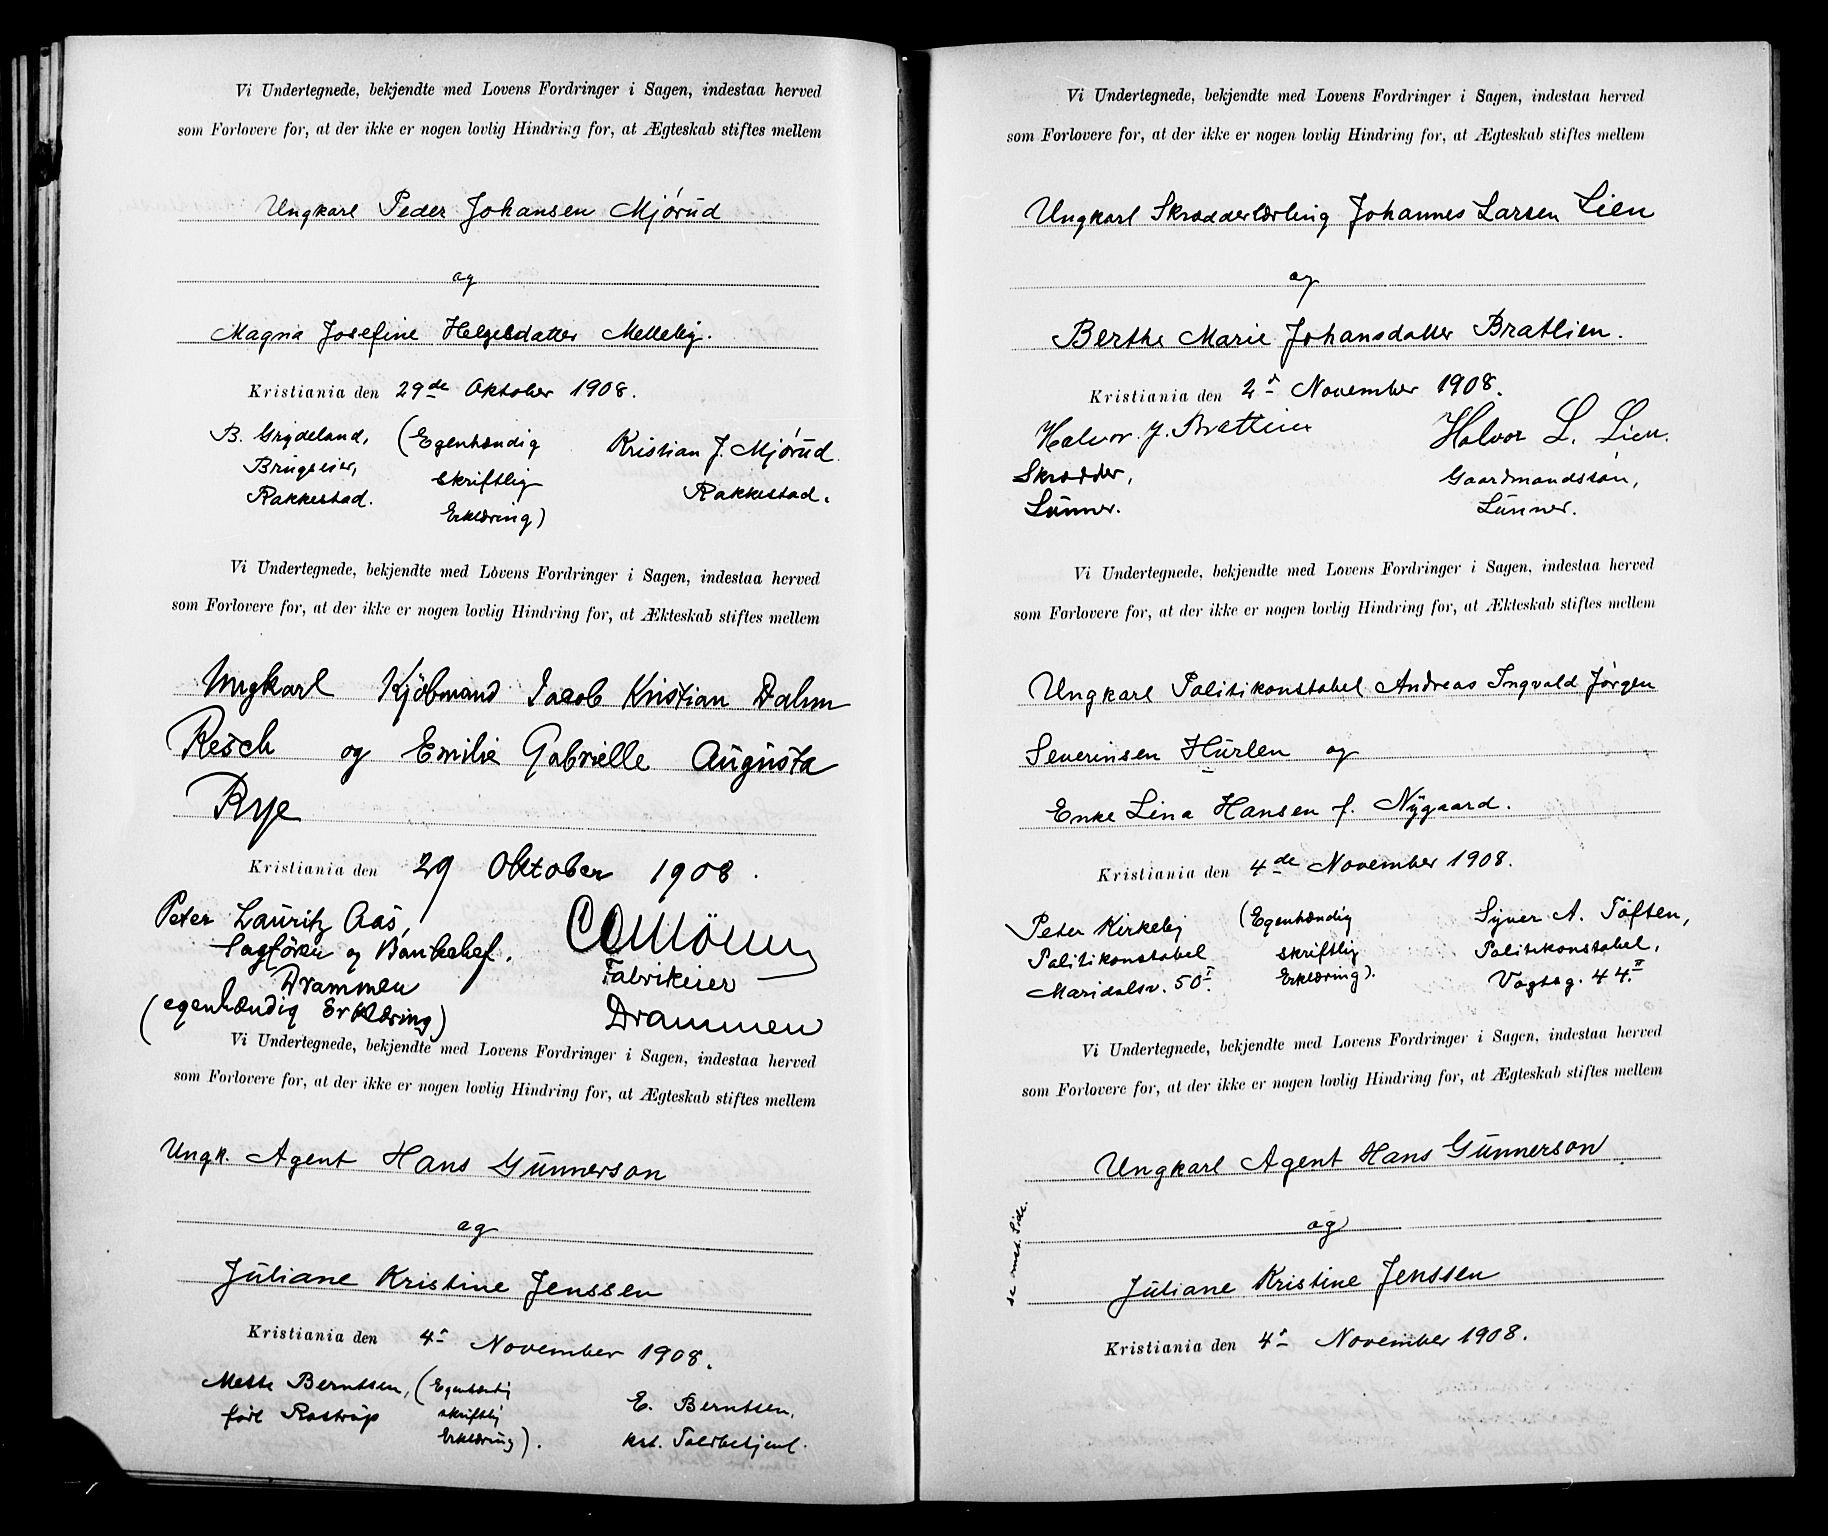 Vi Undertegnede, bekjendte med Lovens Fordringer i Sagen, indestaa herved
som Forlovere for, at der ikke er nogen lovlig Hindring for, at Ægteskab stiftes mellem
Ungkarl Peder Johansen Mjørud
og
Magna Josefine Helgesdatter Melleby.
Kristiania den 29de Oktober 1908.
B. Grydeland, (Egenhændig Kristian J. Mjørud
Brugseier, skriftlig Rakkestad.
Rakkestad. Erklæring)
Vi Undertegnede, bekjendte med Lovens Fordringer i Sagen, indestaa herved
som Forlovere for, at der ikke er nogen lovlig Hindring for, at Ækteskab stiftes mellem
Ungkarl Kjöbmand Jacob Kristian Dahm
Resch og Emilie Gabrielle Augusta
Rye
Kristiania den 29 Oktober 1908.
Peter Lauritz Aas,
Sagförer og Bankchef. Fabrikeier
Drammen Drammen
(egenhændig Erklæring)
Vi Undertegnede, bekjendte med Lovens Fordringer i Sagen, indestaa herved
som Forlovere for, at der ikke er nogen lovlig Hindring for, at Ægteskab stiftes mellem
Ungk. Agent Hans Gunnerson
og
Juliane Kristine Jenssen
Kristiania den 4d November 1908.
Mette Berntsen, (Egenhændig E. Berntsen,
född Rostrup skriftlig kst. Toldbetjent.
Erklæring).
Vi Undertegnede, bekjendte med Lovens Fordringer i Sagen, indestaa herved
som Forlovere for, at der ikke er nogen lovlig Hindring for, at Ægteskab stiftes mellem
Ungkarl Skrædderlærling Johannes Larsen Lien
og
Berthe Marie Johansdatter Bratlien.
Kristiania den 2d November 1908.
Halvor J. Bratlien Halvor L. Lien.
Skrædder, Gaardmandssøn,
Lunner. Lunner.
Vi Undertegnede, bekjendte med Lovens Fordringer i Sagen, indestaa herved
som Forlovere for, at der ikke er nogen lovlig Hindring for, at Ækteskab stiftes mellem
Ungkarl Politikonstabel Andreas Ingvald Jørgen
Severinsen Hurlen og
Enke Lina Hansen f. Nygaard.
Kristiania den 4de November 1908.
Peter Kirkeby (Egenhændig Syver A. Tøften,
Politikonstabel skriftlig Politikonstabel,
Maridalsv. 50I. Erklæring). Vogtsg. 44II.
Vi Undertegnede, bekjendte med Lovens Fordringer i Sagen, indestaa herved
som Forlovere for, at der ikke er nogen lovlig Hindring for, at Ægteskab stiftes mellem
Ungkarl Agent Hans Gunnerson.
og
Juliane Kristine Jenssen
Kristiania den 4d November 1908.
se omst. Side.